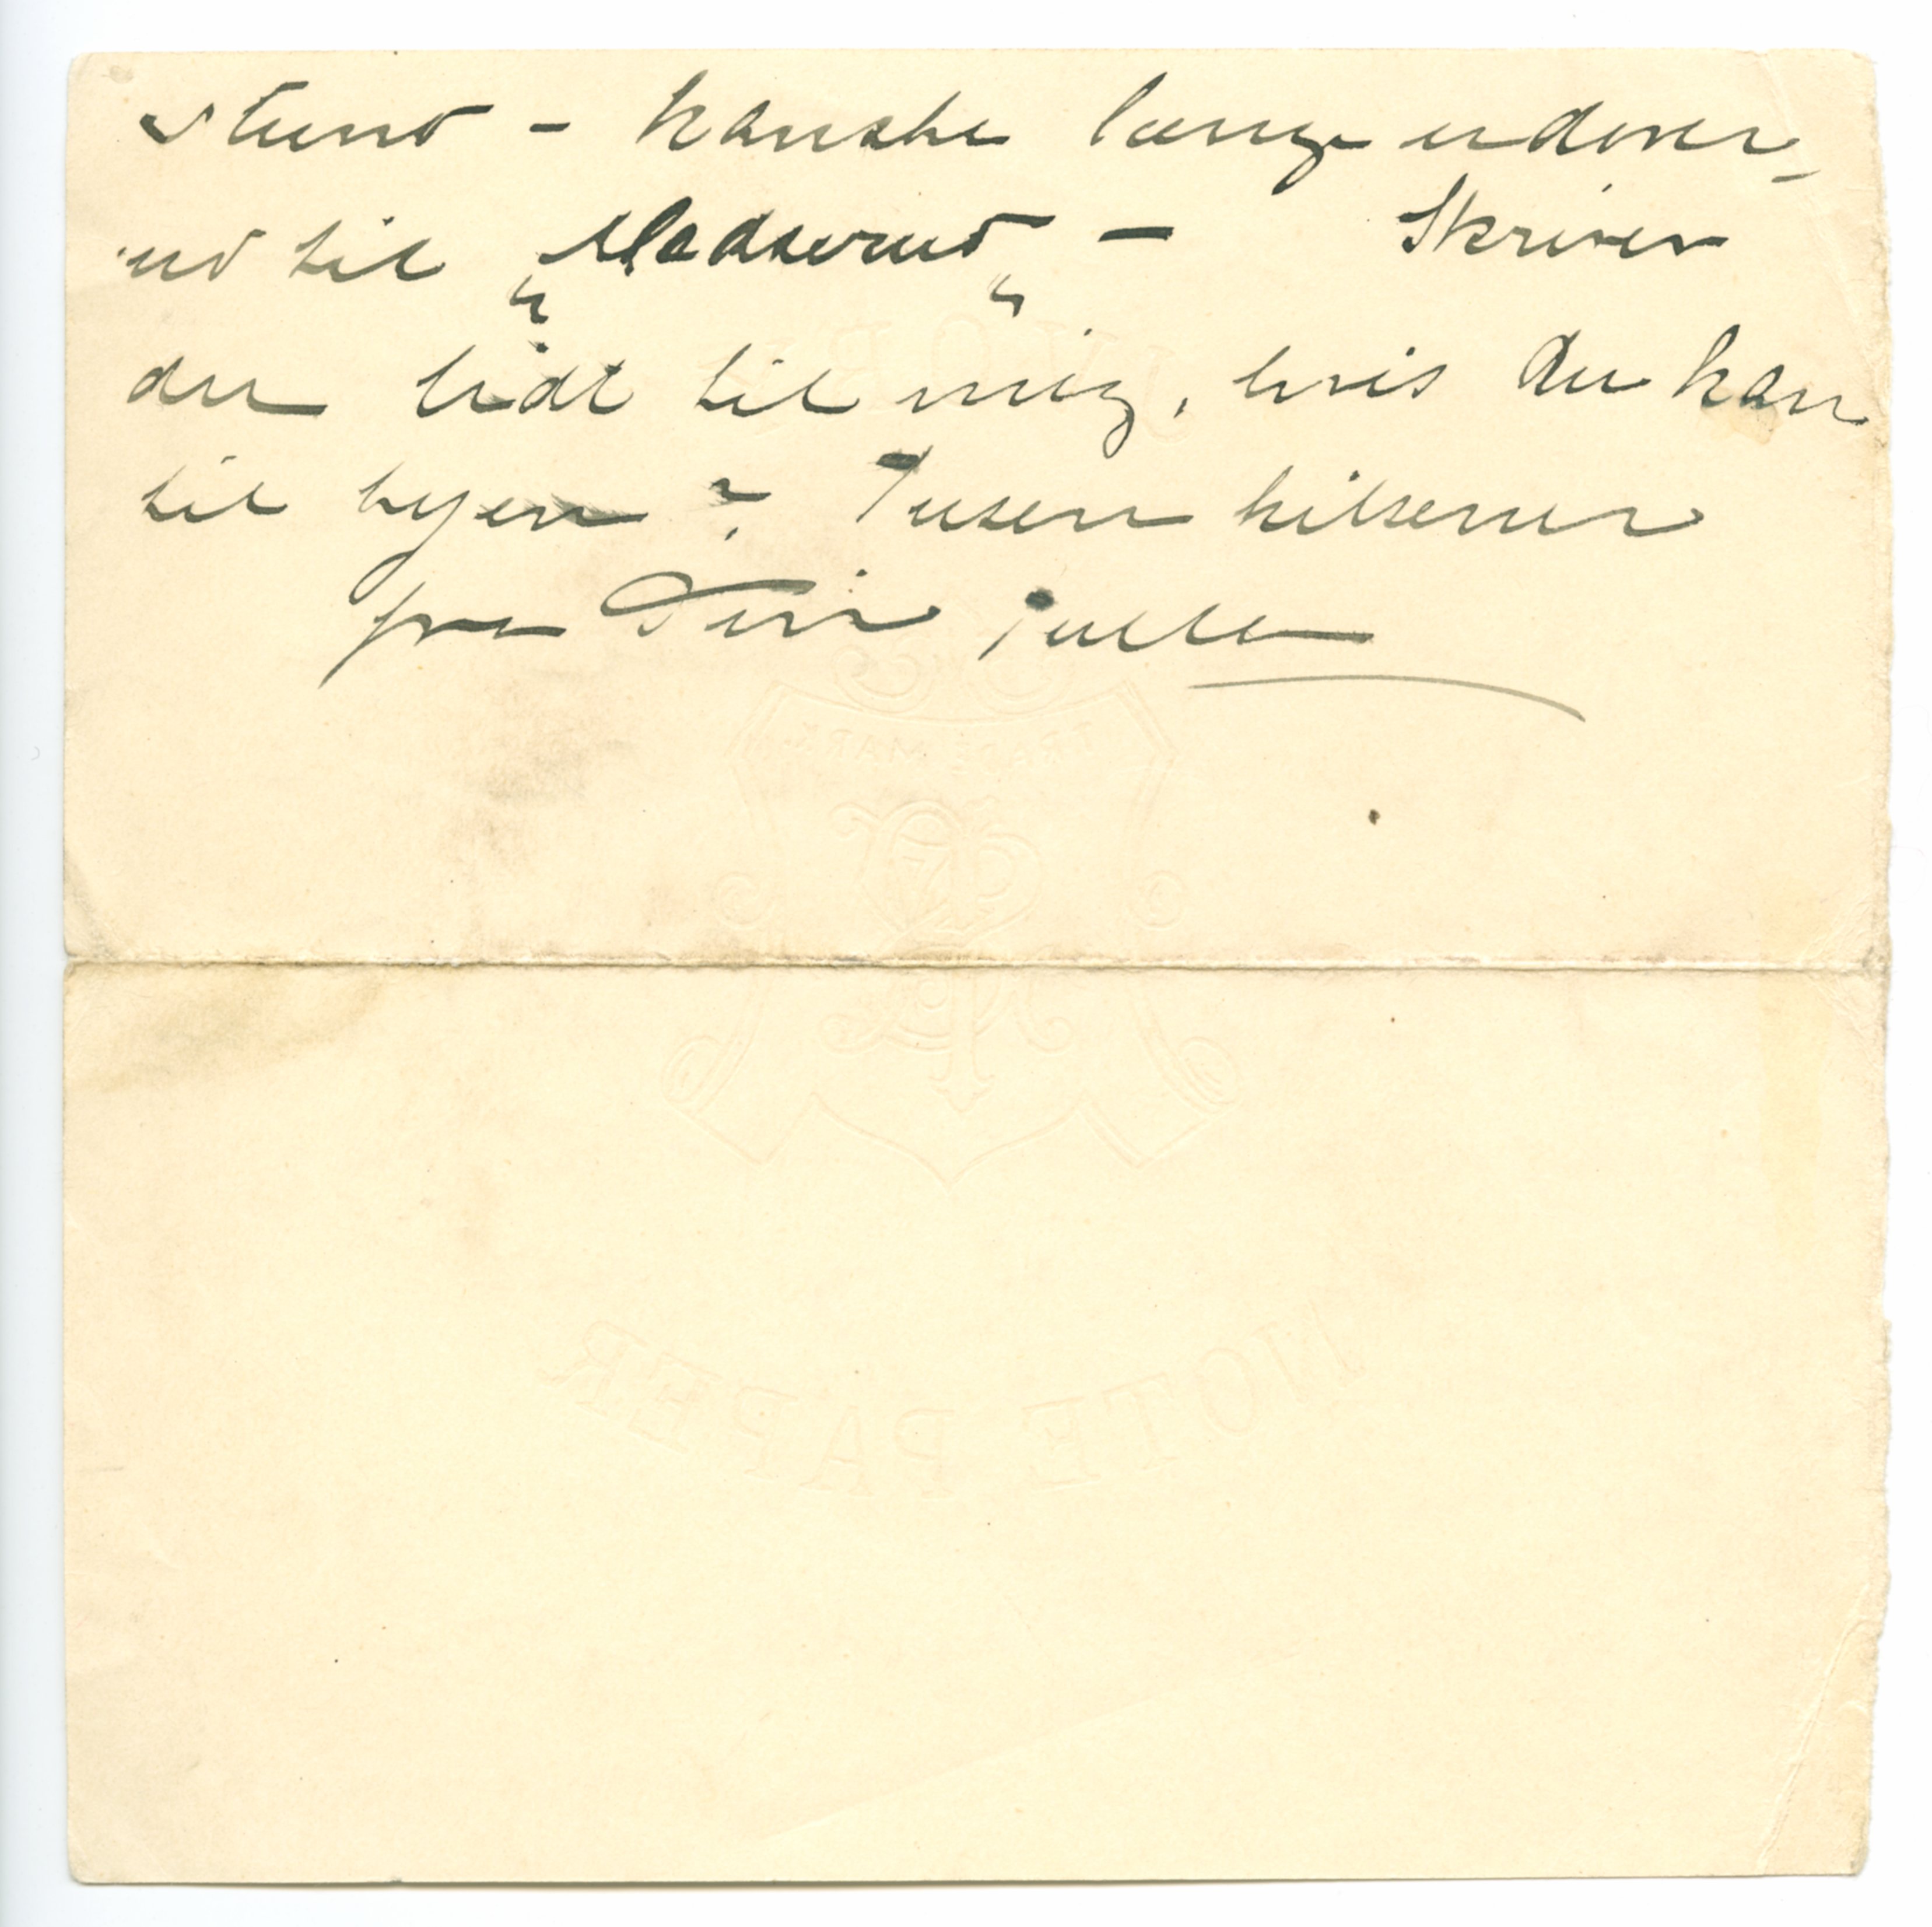 stund – kanske længe udover
ud til „Madserud" – Skriver
du lidt til mig, hvis Du kan
til byen? Tusen hilsener
fra Din julle
IVORY
TRADE MARK
NOTE PAPER